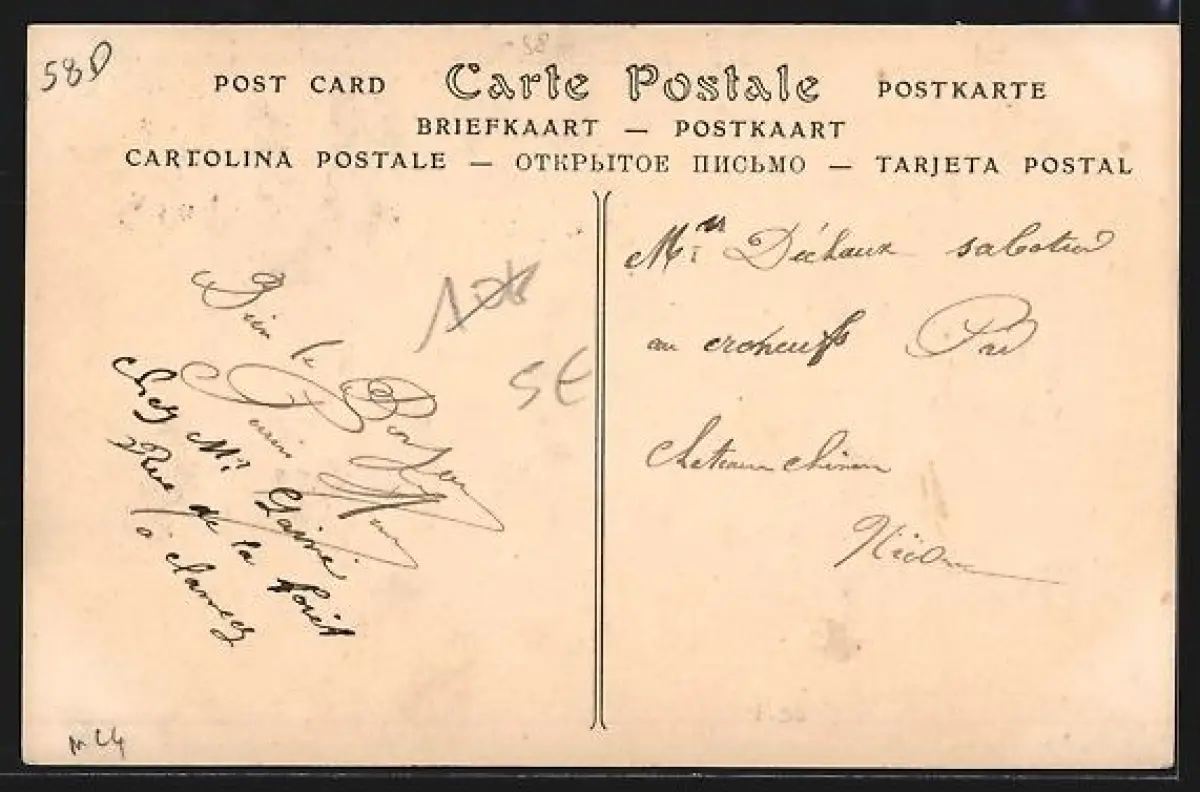 58D
58
POST CARD Carte Postale POSTKARTE
BRIEFKAART — POSTKAART
CARTOLINA POSTALE — ОТКРЫТОЕ ПИСЬМО — TARJETA POSTAL
Bien le
Bonjour
chez Mr
Rue de la Forêt
à clamecy
5€
Mr Déchaux sabotier
au croneufs Par
chateau chinon
Nièvre